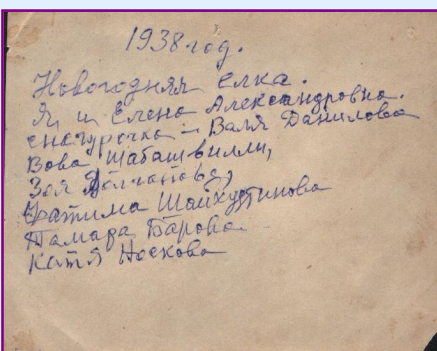 1938 год.
Новогодняя елка.
Я и Елена Александровна.
снегурочка – Валя Данилова
Вова Шабашвилли,
Зоя
Фатима Шайхутдинова
Тамара Барова
Катя Носкова